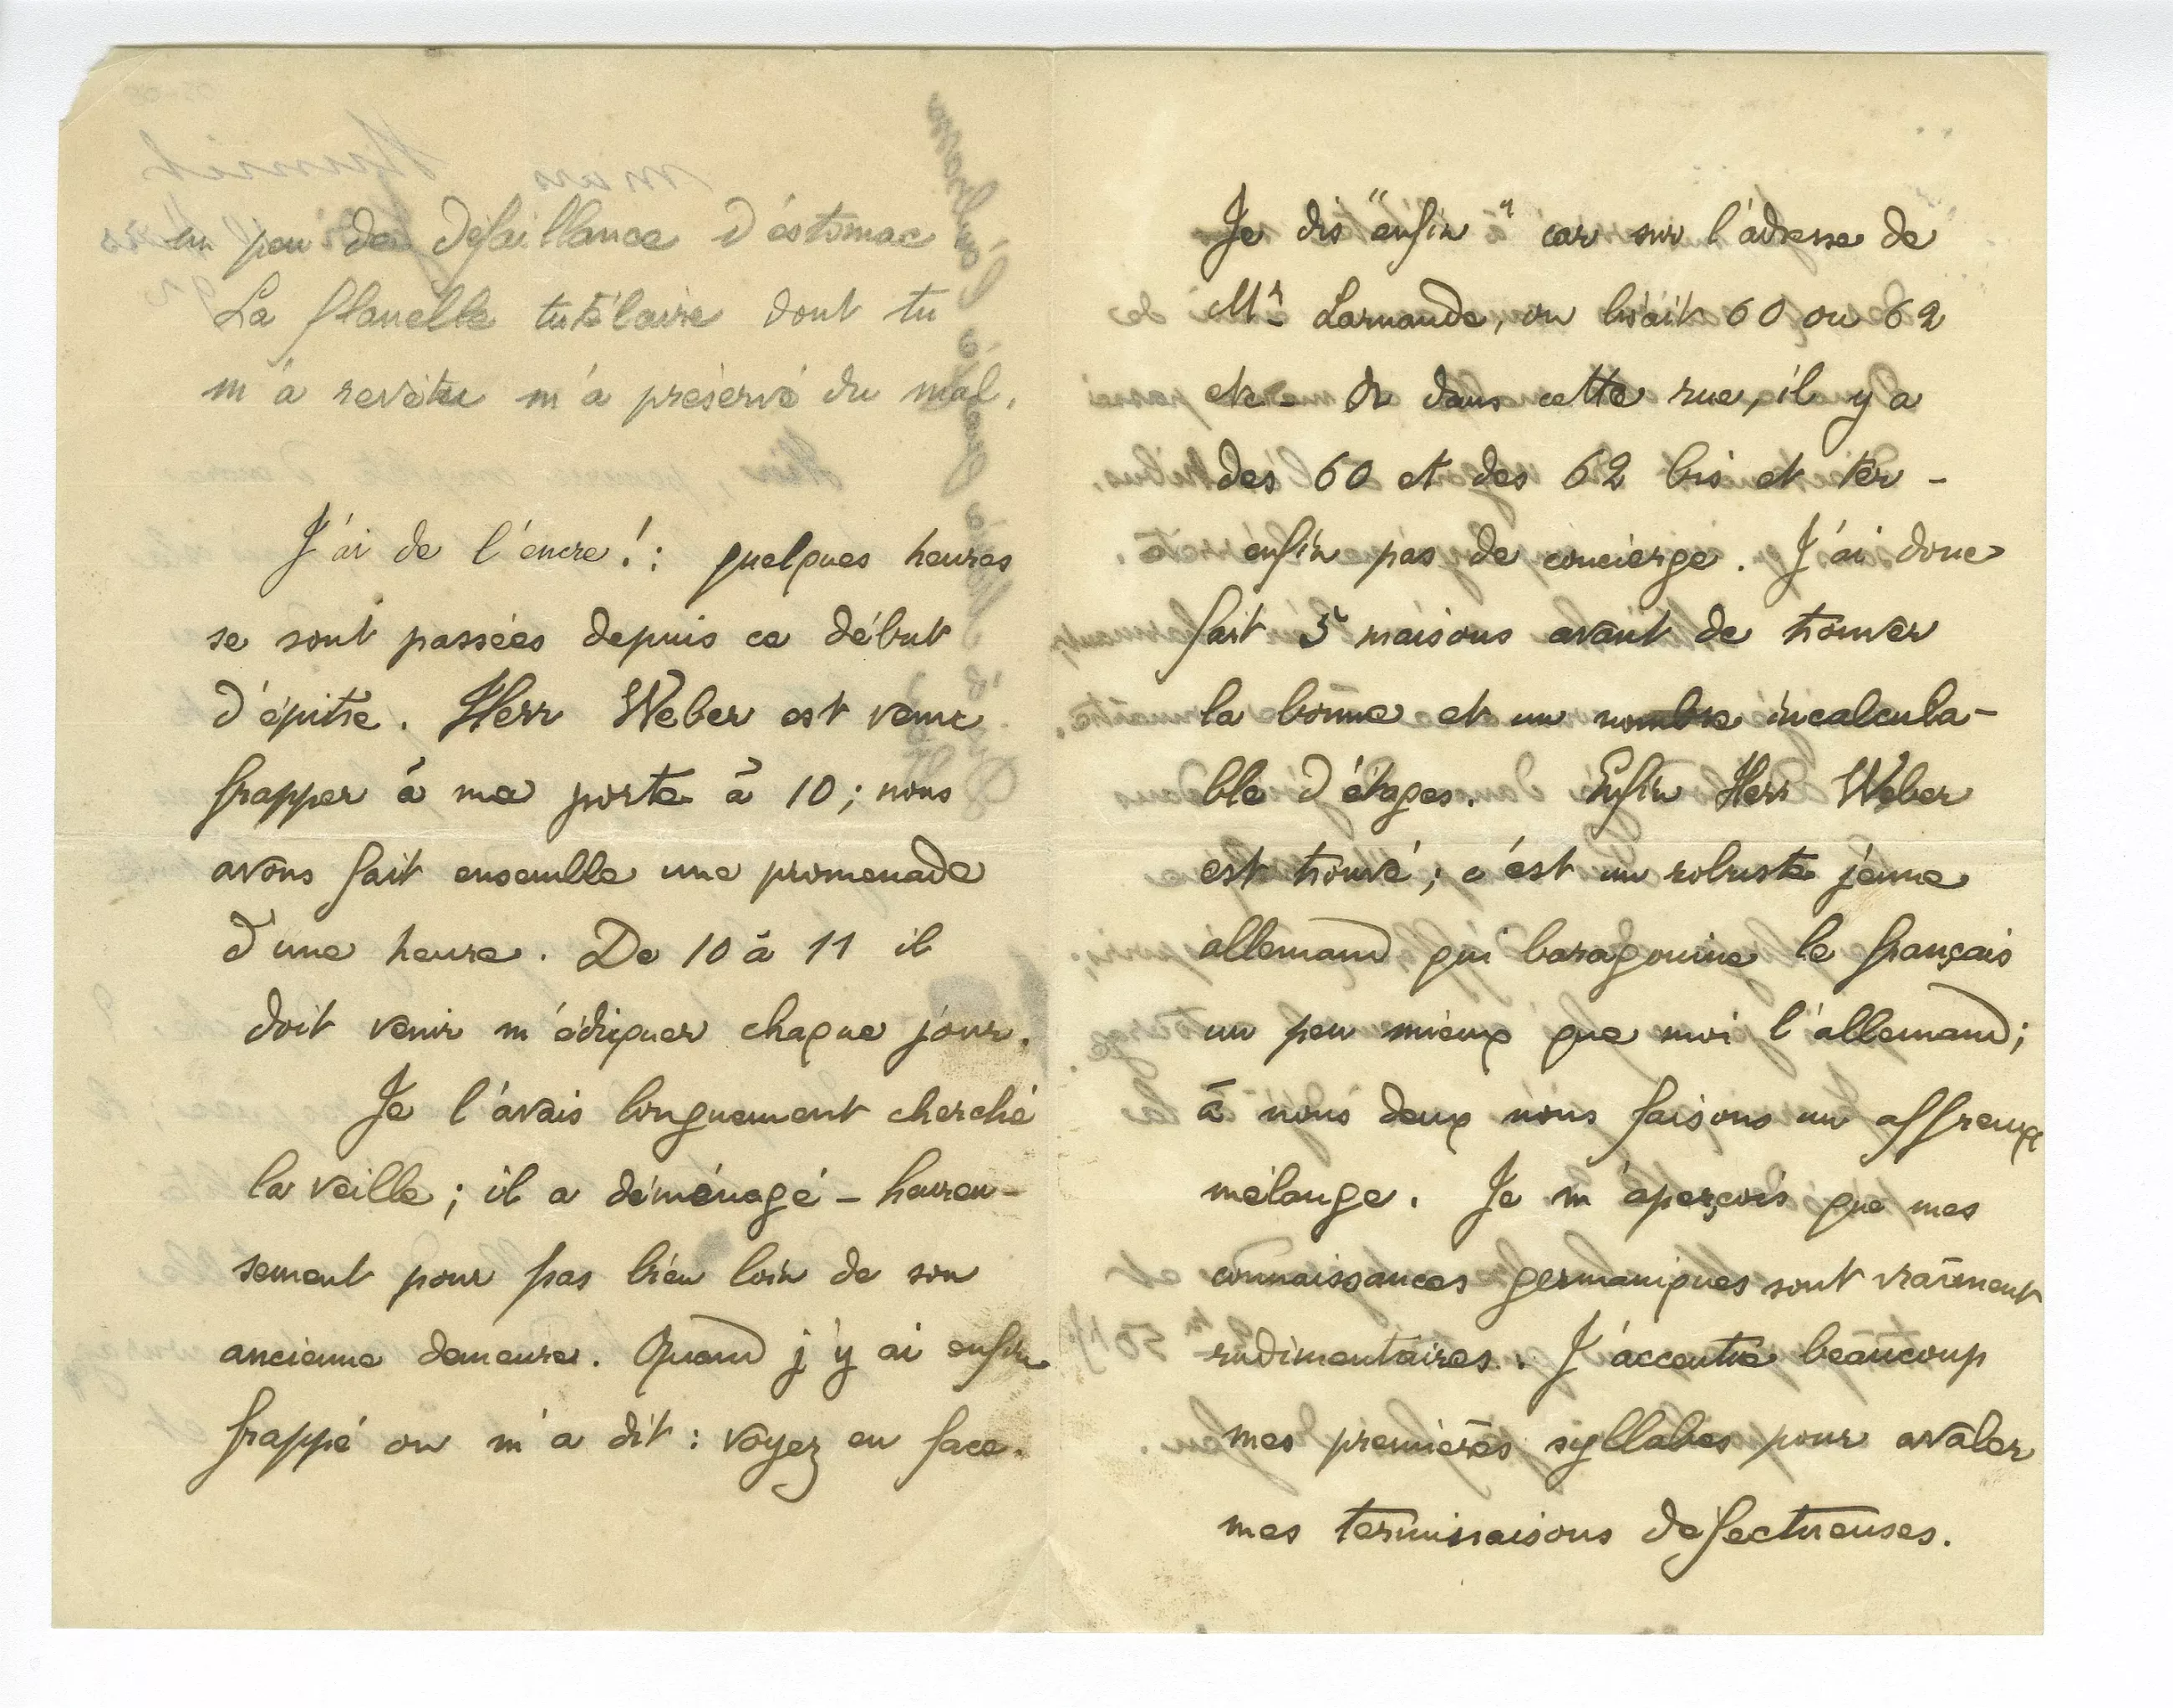 un peu de défaillance d'estomac
La flanelle tutélaire dont tu
m'a revêtu m'a préservé du mal.
J'ai de l'encre! : quelques heures
se sont passées depuis ce début
d'épitre. Herr Weber est venu
frapper à ma porte à 10; nous
avons fait ensemble une promenade
d'une heure. De 10 à 11 il
doit venir m'éduquer chaque jour.
Je l'avais longuement cherché
la veille; il a déménagé - heureu-
sement pour pas bien loin de son
ancienne demeure. Quand j'y ai enfin
frappé on m'a dit : voyez en face.
Je dis "enfin" car sur l'adresse de
Mr Larnaude, on lisait 60 ou 62
etc - Or dans cette rue, il y a
des 60 et des 62 bis et ter -
enfin pas de concierge. J'ai donc
fait 5 maisons avant de trouver
la bonne et un nombre incalcula-
ble d'étages. Enfin Herr Weber
est trouvé; c'est un robuste jeune
allemand qui baragouine le français
un peu mieux que moi l'allemand;
à nous deux nous faisons un affreux
mélange. Je m'aperçois que mes
connaissances germaniques sont vraiment
rudimentaires. J'accentue beaucoup
mes premières syllabes pour avaler
mes terminaisons defectueuses.